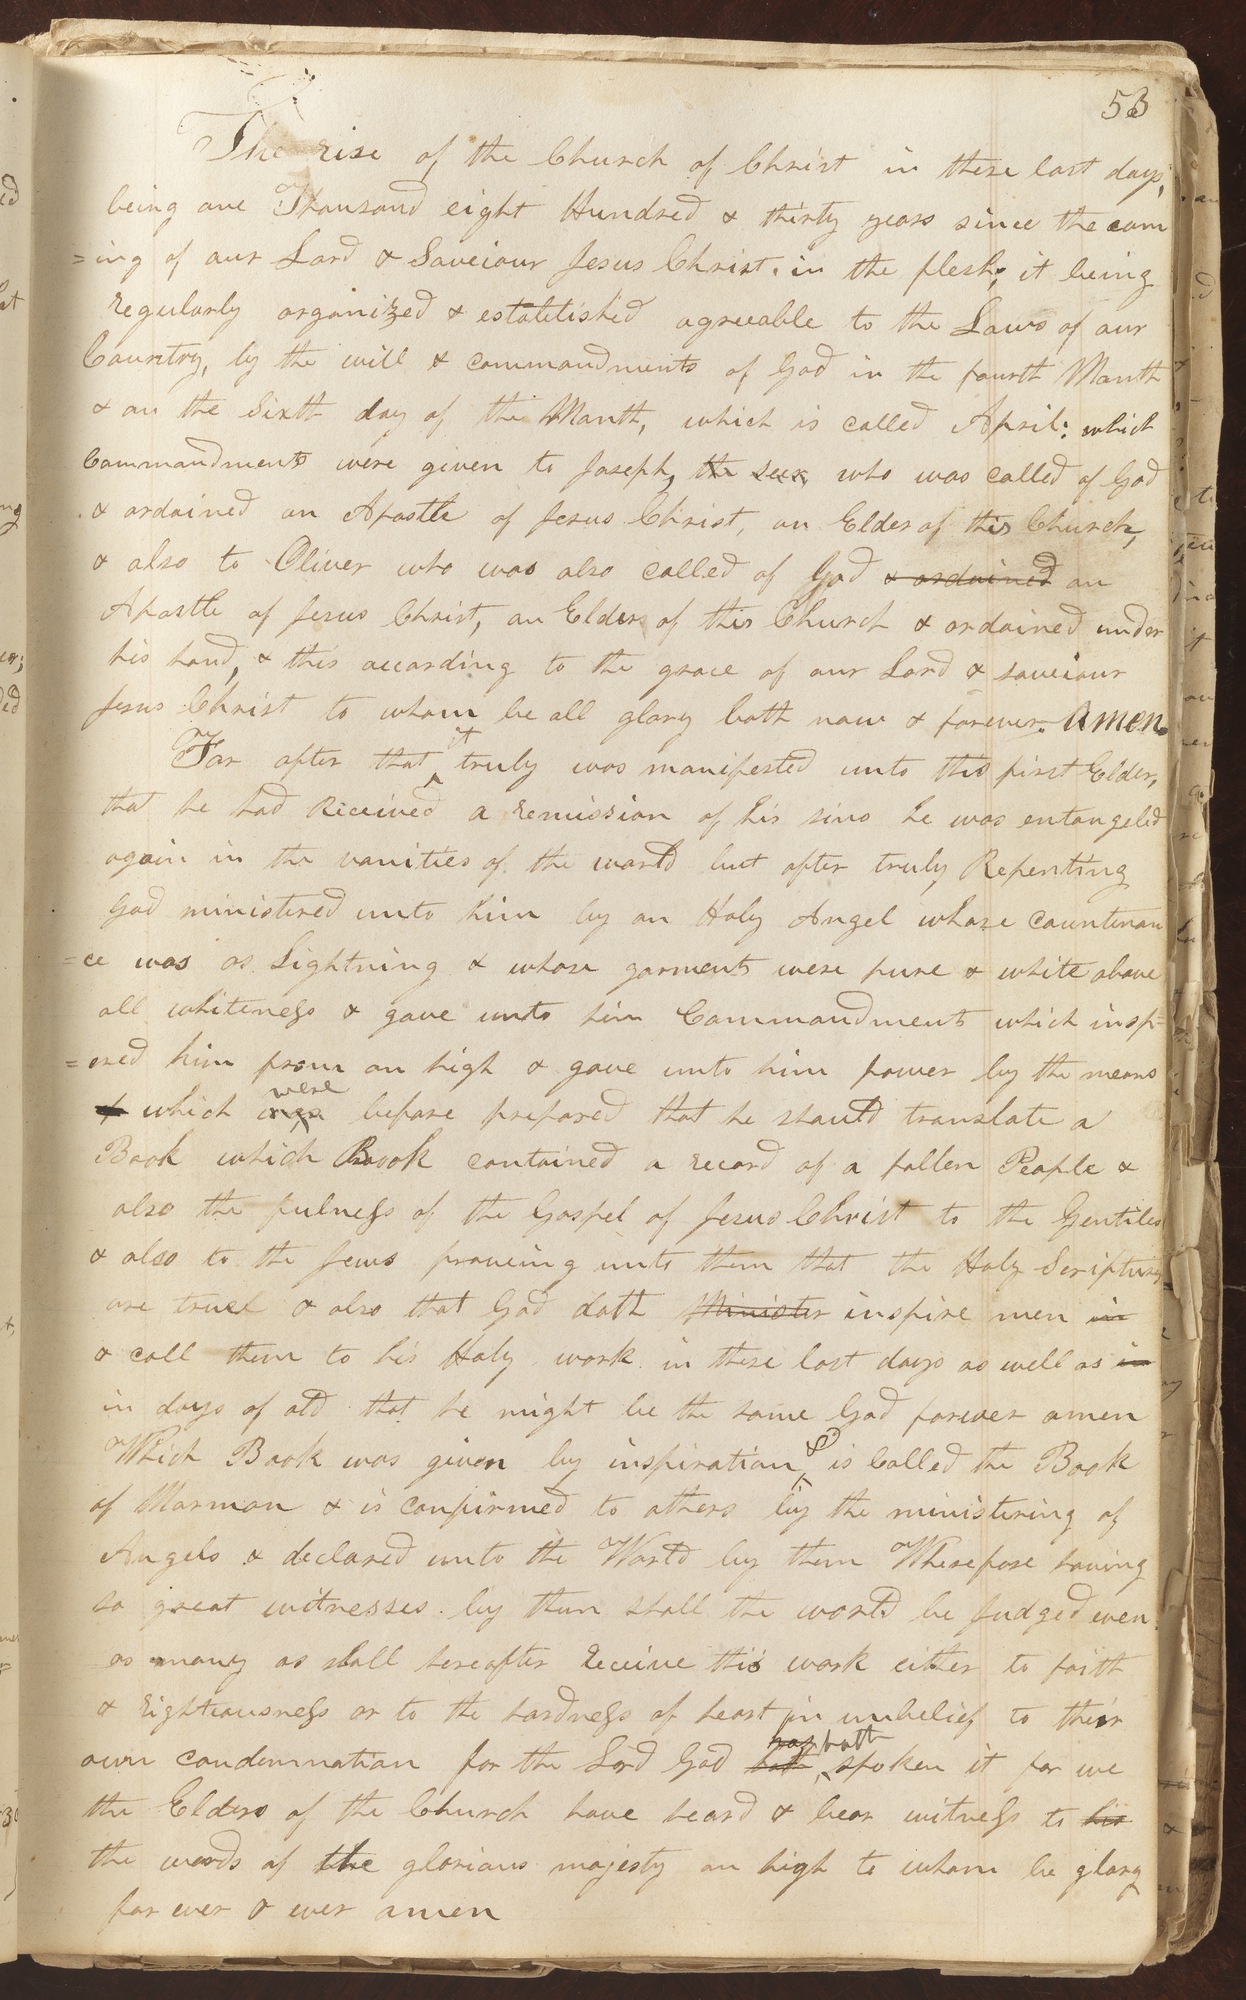 53
The rise of the Church of Christ in these last days,
being one Thousand eight Hundred & thirty years since the com
=ing of our Lord & Saveiour Jesus Christ. in the flesh; it being
regularly organized & established agreeable to the Laws of our
Country, by the will & commandments of God in the fourth Month
& on the Sixth day of the Month, which is called April: which
Commandments were given to Joseph, the seer, who was called of God
& ordained an Apostle of Jesus Christ, an Elder of this Church,
& also to Oliver who was also called of God & ordained an
Apostle of Jesus Christ, an Elder of this Church & ordained under
his hand, & this according to the grace of our Lord & saveiour
Jesus Christ to whom be all glory both now & forever. Amen.
it
For after that truly was manifested unto this first Elder,
that he had Received a remission of his sins he was entangeled
again in the vanities of the world but after truly Repenting
God ministered unto him by an Holy Angel whose countenan
=ce was as Lightning & whose garments were pure & white above
all whiteness & gave unto him Commandments which insp=
=ired him from on high & gave unto him power by the means
were
which was before prepared that he should translate a
Book which Book contained a record of a fallen People &
also the fulness of the Gospel of Jesus Christ to the Gentiles
& also to the Jews proveing unto them that the Holy Scriptures
are true & also that God doth Minister inspire men in
& call them to his Holy work in these last days as well as in
in days of old that he might be the same God forever amen
&
Which Book was given by inspiration is Called the Book
of Mormon & is confirmed to others by the ministering of
Angels & declared unto the World by them Wherefore having
so great witnesses by them shall the world be Judged even
as many as shall hereafter receive this work either to faith
& rightiousness or to the hardness of heart in unbelief to their
has hath
own condemnation for the Lord God hath spoken it for we
the Elders of the Church have heard & bear witness to his
the words of the glorious majesty on high to whom be glory
for ever & ever amen